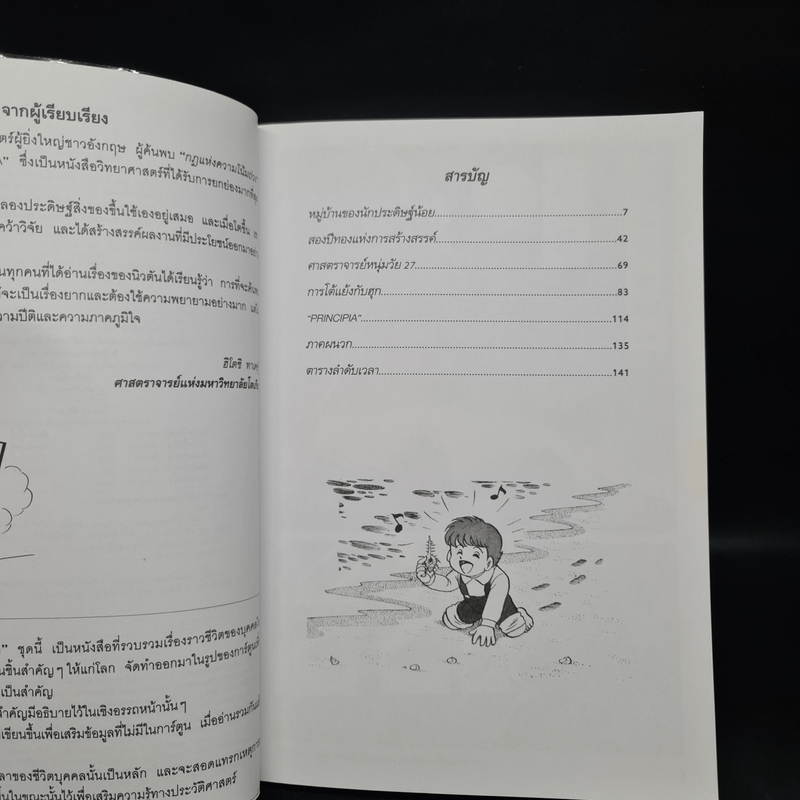 จากผู้เรียบเรียง
ตร์ผู้ยิ่งใหญ่ชาวอังกฤษ ผู้ค้นพบ "กฎแห่งความโน้มถ่วง"
ซึ่งเป็นหนังสือวิทยาศาสตร์ที่ได้รับการยกย่องมากที่สุด
ลองประดิษฐ์สิ่งของขึ้นใช้เองอยู่เสมอ และเมื่อโตขึ้น
คว้าวิจัย และได้สร้างสรรค์ผลงานที่มีประโยชน์ออกมาอย่าง
นทุกคนที่ได้อ่านเรื่องของนิวตันได้เรียนรู้ว่า การที่จะค้นพบ
จะเป็นเรื่องยากและต้องใช้ความพยายามอย่างมาก
วามปีติและความภาคภูมิใจ
ฮิโตชิ
ศาสตราจารย์แห่งมหาวิทยาลัย
ชุดนี้ เป็นหนังสือที่รวบรวมเรื่องราวชีวิตของบุคคล
นชิ้นสำคัญๆ ให้แก่โลก จัดทำออกมาในรูปของการ์ตูน
เป็นสำคัญ
สำคัญมีอธิบายไว้ในเชิงอรรถหน้านั้นๆ
เขียนขึ้นเพื่อเสริมข้อมูลที่ไม่มีในการ์ตูน เมื่ออ่านรวมกัน
ลาของชีวิตบุคคลนั้นเป็นหลัก และจะสอดแทรกเหตุการ
ขึ้นในขณะนั้นไว้เพื่อเสริมความรู้ทางประวัติศาสตร์
สารบัญ
หมู่บ้านของนักประดิษฐ์น้อย...7
สองปีทองแห่งการสร้างสรรค์...42
ศาสตราจารย์หนุ่มวัย 27...69
การโต้แย้งกับฮุก...83
"PRINCIPIA"...114
ภาคผนวก...135
ตารางลำดับเวลา...141